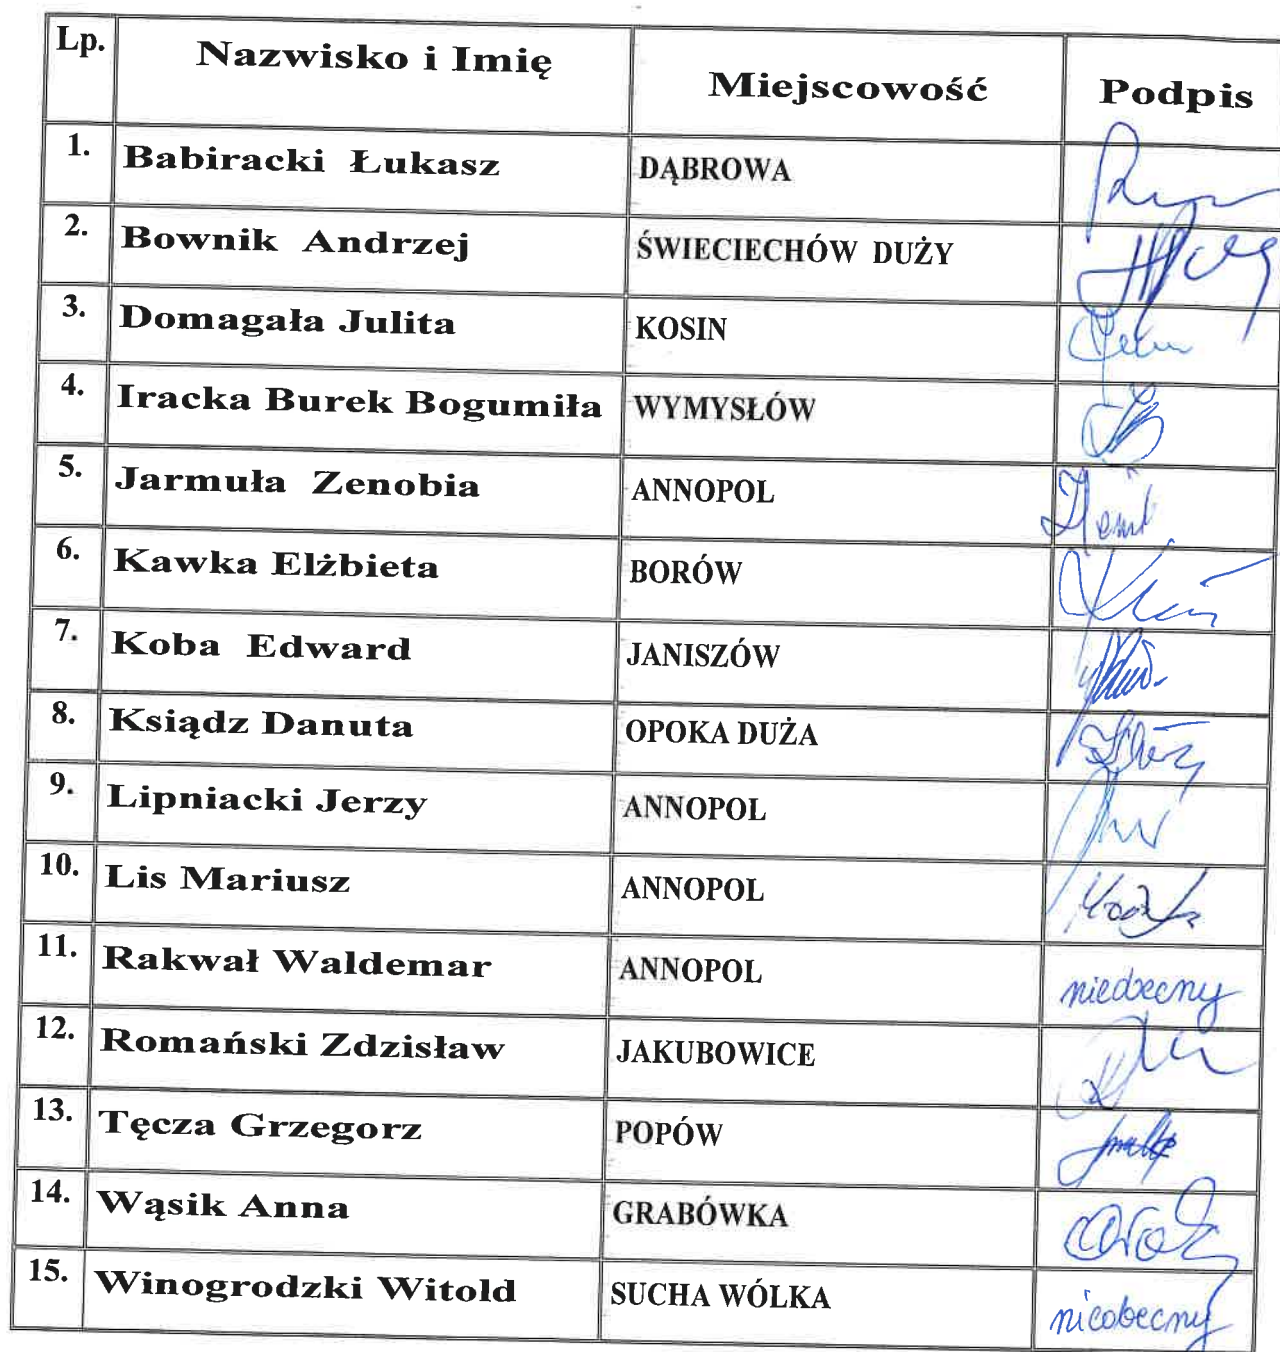 Lp. Nazwisko i Imię Miejscowość Podpis
1. Babiracki Łukasz DĄBROWA
2. Bownik Andrzej ŚWIECIECHÓW DUŻY
3. Domagała Julita KOSIN
4. Iracka Burek Bogumiła WYMYSŁÓW
5. Jarmuła Zenobia ANNOPOL
6. Kawka Elżbieta BORÓW
7. Koba Edward JANISZÓW
8. Ksiądz Danuta OPOKA DUŻA
9. Lipniacki Jerzy ANNOPOL
10. Lis Mariusz ANNOPOL
11. Rakwał Waldemar ANNOPOL nieobecny
12. Romański Zdzisław JAKUBOWICE
13. Tęcza Grzegorz POPÓW
14. Wąsik Anna GRABÓWKA
15. Winogrodzki Witold SUCHA WÓLKA nieobecny